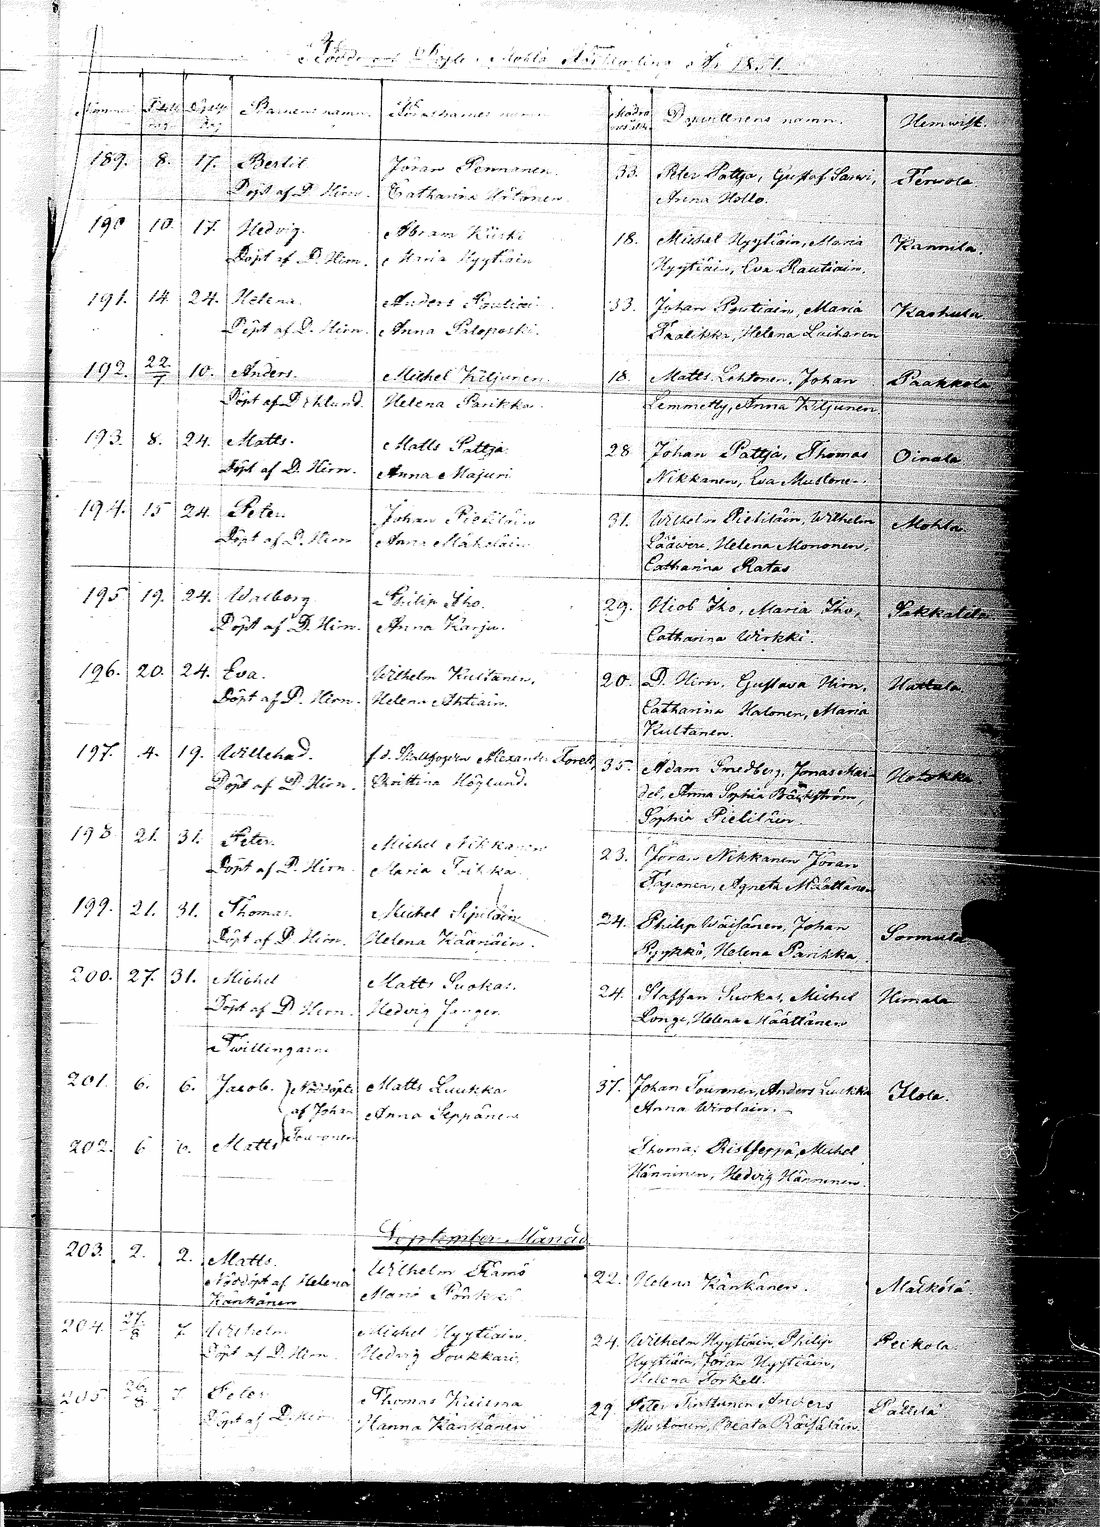 Födde och Döpte i Mohla Församling År 1851.
Födelse dag Döpelse dag Barnens namn. Föräldrarnes namn. Modrens ålder Dopvittnens namn. Hemvist.
189. 8. 17. Bertil Jöran Pennanen. 33. Peter Pattja, Gustaf Sarvi, Tervola.
Döpt af D. Hirn. Catharina Hötönen Anna Hollo.
190 10. 17. Hedvig. Abram Kurki 18. Michel Hyytiäin, Maria Kannila.
Döpt af D. Hirn. Maria Hyytiäin Hyytiäin, Eva Rautiain.
191. 14. 24. Helena. Anders Poutiain 33. Johan Poutiain, Maria Kaahula.
Döpt af D. Hirn. Anna Paloposki. Paalikka, Helena Laihanen
192. 22/7 10. Anders. Michel Kiljunen. 18. Matts Lehtonen, Johan Paakkola
Döpt af D. Eklund. Helena Parikka. Lemmetty, Anna Kiljunen
193. 8. 24. Matts. Matts Pattja. 28 Johan Pattja, Thomas Oinala
Döpt af D. Hirn. Anna Majuri Nikkanen, Eva Mustonen.
194. 15 24. Peter. Johan Pieliläin 31. Wilhelm Pieliläin, Wilhelm Mohla.
Döpt af D. Hirn Anna Mäkeläin Lääveri, Helena Mononen,
Catharina Ratas
195 19. 24. Walborg. Philip Iho. 29. Hiob Iho, Maria Iho, Sakkalila.
Döpt af D. Hirn. Anna Karju. Catharina Wirkki.
196. 20. 24. Eva. Wilhelm Kultanen. 20. D. Hirn, Gustava Hirn, Hattula.
Döpt af D. Hirn. Helena Ahtiain. Catharina Halonen, Maria
Kultanen.
197. 4. 19. Willehad. f.d. Alexander Forell, 35. Adam Smedberg, Jonas Mai-
Döpt af D. Hirn. Christina Höglund. del, Anna Sophia Bäckström,
Sophia Pieliläin.
198 21. 31. Peter. Michel Nikkanen 23. Jöran Nikkanen Jöran
Döpt af D. Hirn. Maria Tribka. Taponen, Agneta Määttänen
199. 21. 31. Thomas. Michel Sipiläin 24. Philip Wäisänen, Johan Sormula
Döpt af D. Hirn. Helena Käänäin. Pyykkö, Helena Parikka.
200. 27. 31. Michel Matts Suokas. 24. Staffan Suokas, Michel Himala
Döpt af D. Hirn. Hedvig Junger Longi, Helena Määttänen
Twillingarne
201. 6. 6. Jacob. Nöddöpte Matts Luukka 37. Johan Touronen, Anders Luukka Ilola.
af Johan Anna Seppänen Anna Wirolain.
Touronen
202. 6 6. Matts Thomas Ristseppä, Michel
Hänninen, Hedvig Hänninen.
September Månad
203. 2. 2. Matts. Wilhelm Rämö 22. Helena Känkänen. Mälkölä
Nöddöpt af Helena Maria Pönkkö
Känkänen
204. 27/8 7 Wilhelm Michel Hyytiäin. 24. Wilhelm Hyytiäin, Philip Peikola.
Döpt af D. Hirn. Hedvig Poukkari. Hyytiäin, Jöran Hyytiäin,
Helena Torkell.
205. 26/8 7 Peter Thomas Kuisma 29 Peter Anders Pällilä
Döpt af D. Hirn Hanna Känkänen Mustonen, Beata Räisäläin